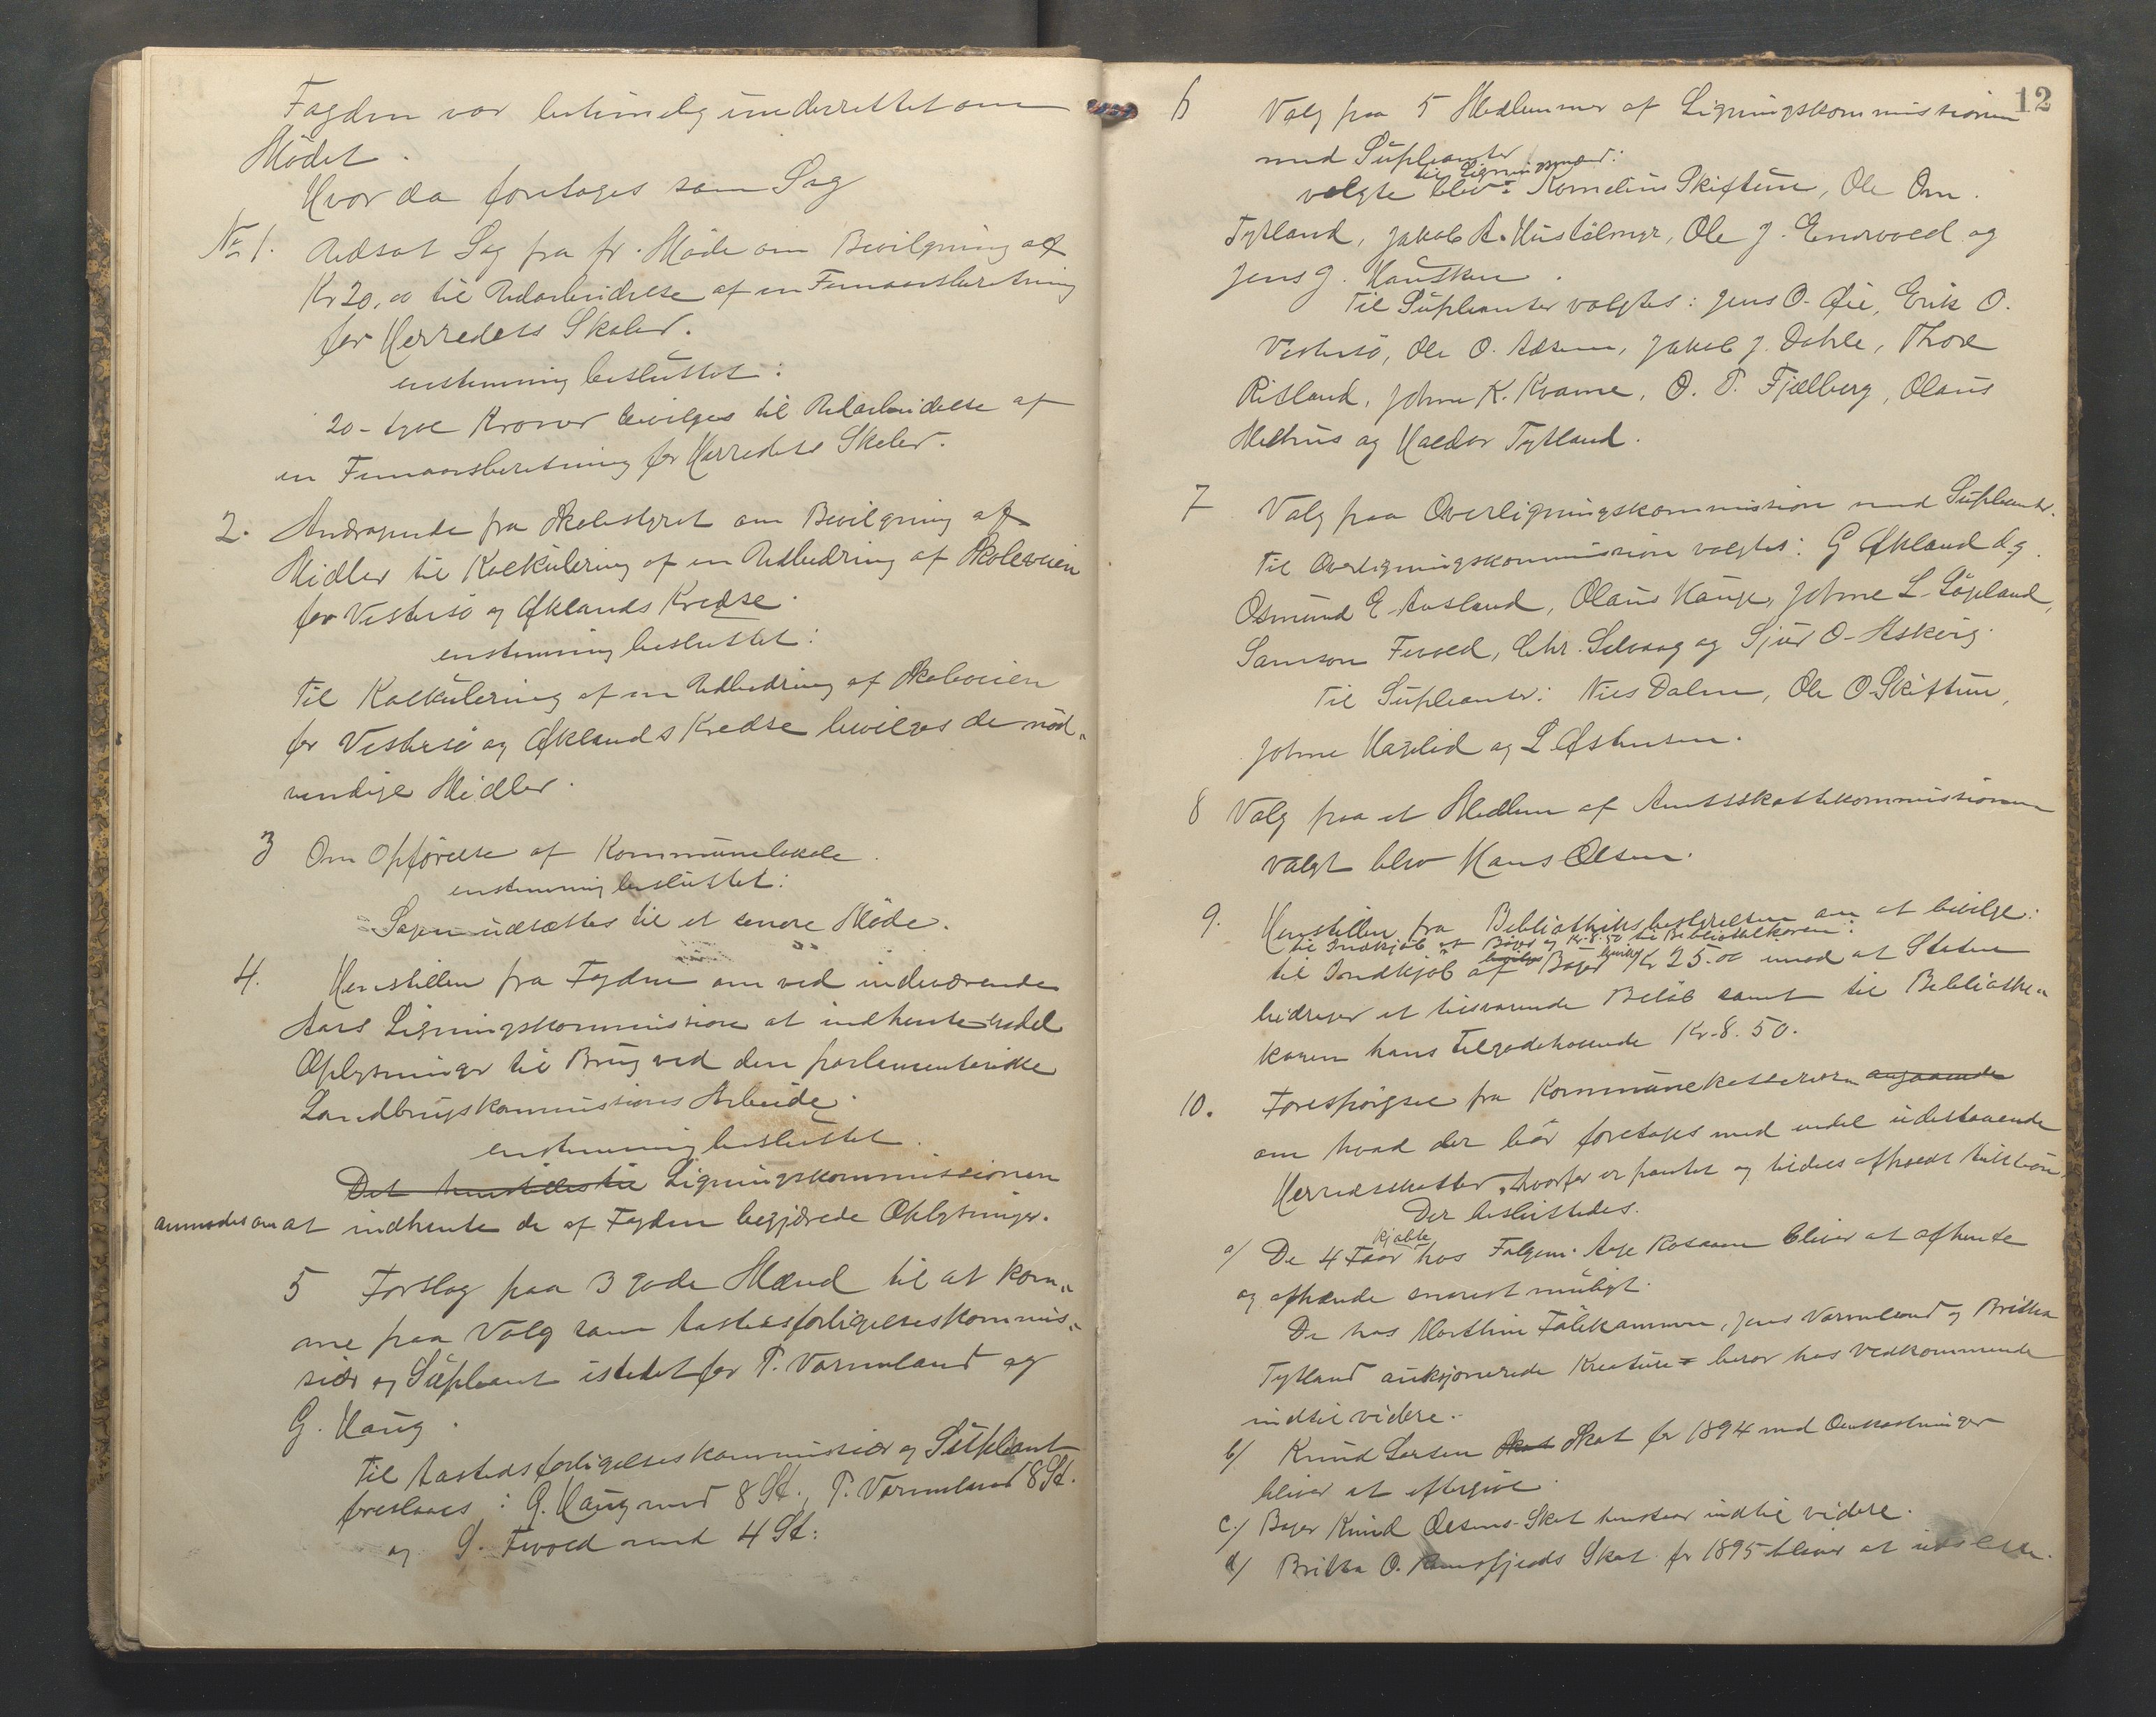 Fogden var betimelig underrettet om
Mödet.
Hvor da foretoges som Sag
No 1. Udsat Sag fra fr. Möde om Bevilgning af
Kr 20,00 til Udarbeidelse af en Femaarsberetning
for Herredets Skoler.
enstemmig besluttet:
20 - tyve Kroner bevilges til Udarbeidelse af
en Femaarsberetning for Herredets Skoler.
2. Andragende fra Skolestyret om Bevilgning af
Midler til Kalkulering af en Udbedring af Skoleveien
for Vestersö og Öklands Kredse.
enstemmig besluttet:
Til Kalkulering af en Udbedring af Skoleveien
for Vestersö og Öklands Kredse bevilges de nöd„
vendige Midler.
3 Om Opförelse af Kommunelokale.
enstemmig besluttet:
Sagen udsættes til et senere Möde.
4. Henstillen fra Fogden om ved indeværende
Aars Ligningskommission at indhente endel
Oplysninger til Brug ved den parlamentariske
Landbrugskommissions Arbeide.
enstemmig besluttet.
Det henstilles til Ligningskommissionen
anmodes om at indhente de af Fogden begjærede Oplysninger.
5 Forslag paa 3 gode Mænd til at kom„
me paa Valg som Aastedsforligelseskommis„
sær og Supleant istedet for P. Vormeland og
G. Haug.
Til Aastedsforligelseskommissær og Supleant
foreslaaes: G. Haug med 8 St., P. Vormeland 8 St.
og S. Tvoed med 4 St:
12
6 Valg paa 5 Medlemmer af Ligningskommissionen
med Supleanter
til Ligningsmænd:
valgte blev: Kornelius Skiftun, Ole Om.
Tytland, Jakob A. Hustölmyr, Ole J. Enervoed og
Jens J. Hausken.
Til Supleanter valgtes: Jens O. Öie, Erik O.
Vestersö, Ole O. Aasen, Jakob J. Dahle, Thore
Risland, Johne K. Kvame, O. T. Fjælberg, Olaus
Melhus og Haldor Tytland.
7 Valg paa Overligningskommission med Supleanter.
Til Overligningskommission valgtes: G Ökland d.y.
Osmund E. Aasland, Olaus Hauge, Johne L. Lögeland,
Samson Tvoed, Chr. Selvaag og Sjur O. Askvig.
Til Supleanter: Nils Dalen, Ole O. Skiftun,
Johne Haglid og L. Östhusen.
8 Valg paa et Medlem af Amtsskattekommissionen
Valgt blev Hans Olsen.
9. Henstillen fra Bibliotheksbestyrelsen om at bevilge:
til Indkjöb af Böger og Kr. 8.50 til Bibliothekaren:
til Indkjöb af Böger Kr 25.00 imod at Staten
bidrager et tilsvarende Belöb samt til Bibliothe„
karen hans Tilgodehavende Kr. 8.50.
10. Forespörgsel fra Kommunekassereren angaaende
om hvad der bör foretages med endel udestaaende
Herredsskatter, hvorfor er pantet og tildels afholdt Auktion.
Der besluttedes.
kjöbte
a/ De 4 Faar hos Folgem. Aage Rosaaen bliver at afhente
og afhænde snarest muligt.
De hos Marthin Fölekammen, Jens Vormeland og Britha
Tytland auksjonerede Kreature beror hos Vedkommende
indtil videre.
b/ Knud Larsen Skat Skat for 1894 med Omkostninger
bliver at eftergive.
c./ Bager Knud Olsens Skat henstaar indtil videre.
d/ Britha O. Ramsfjelds Skat for 1895 bliver at udslette.